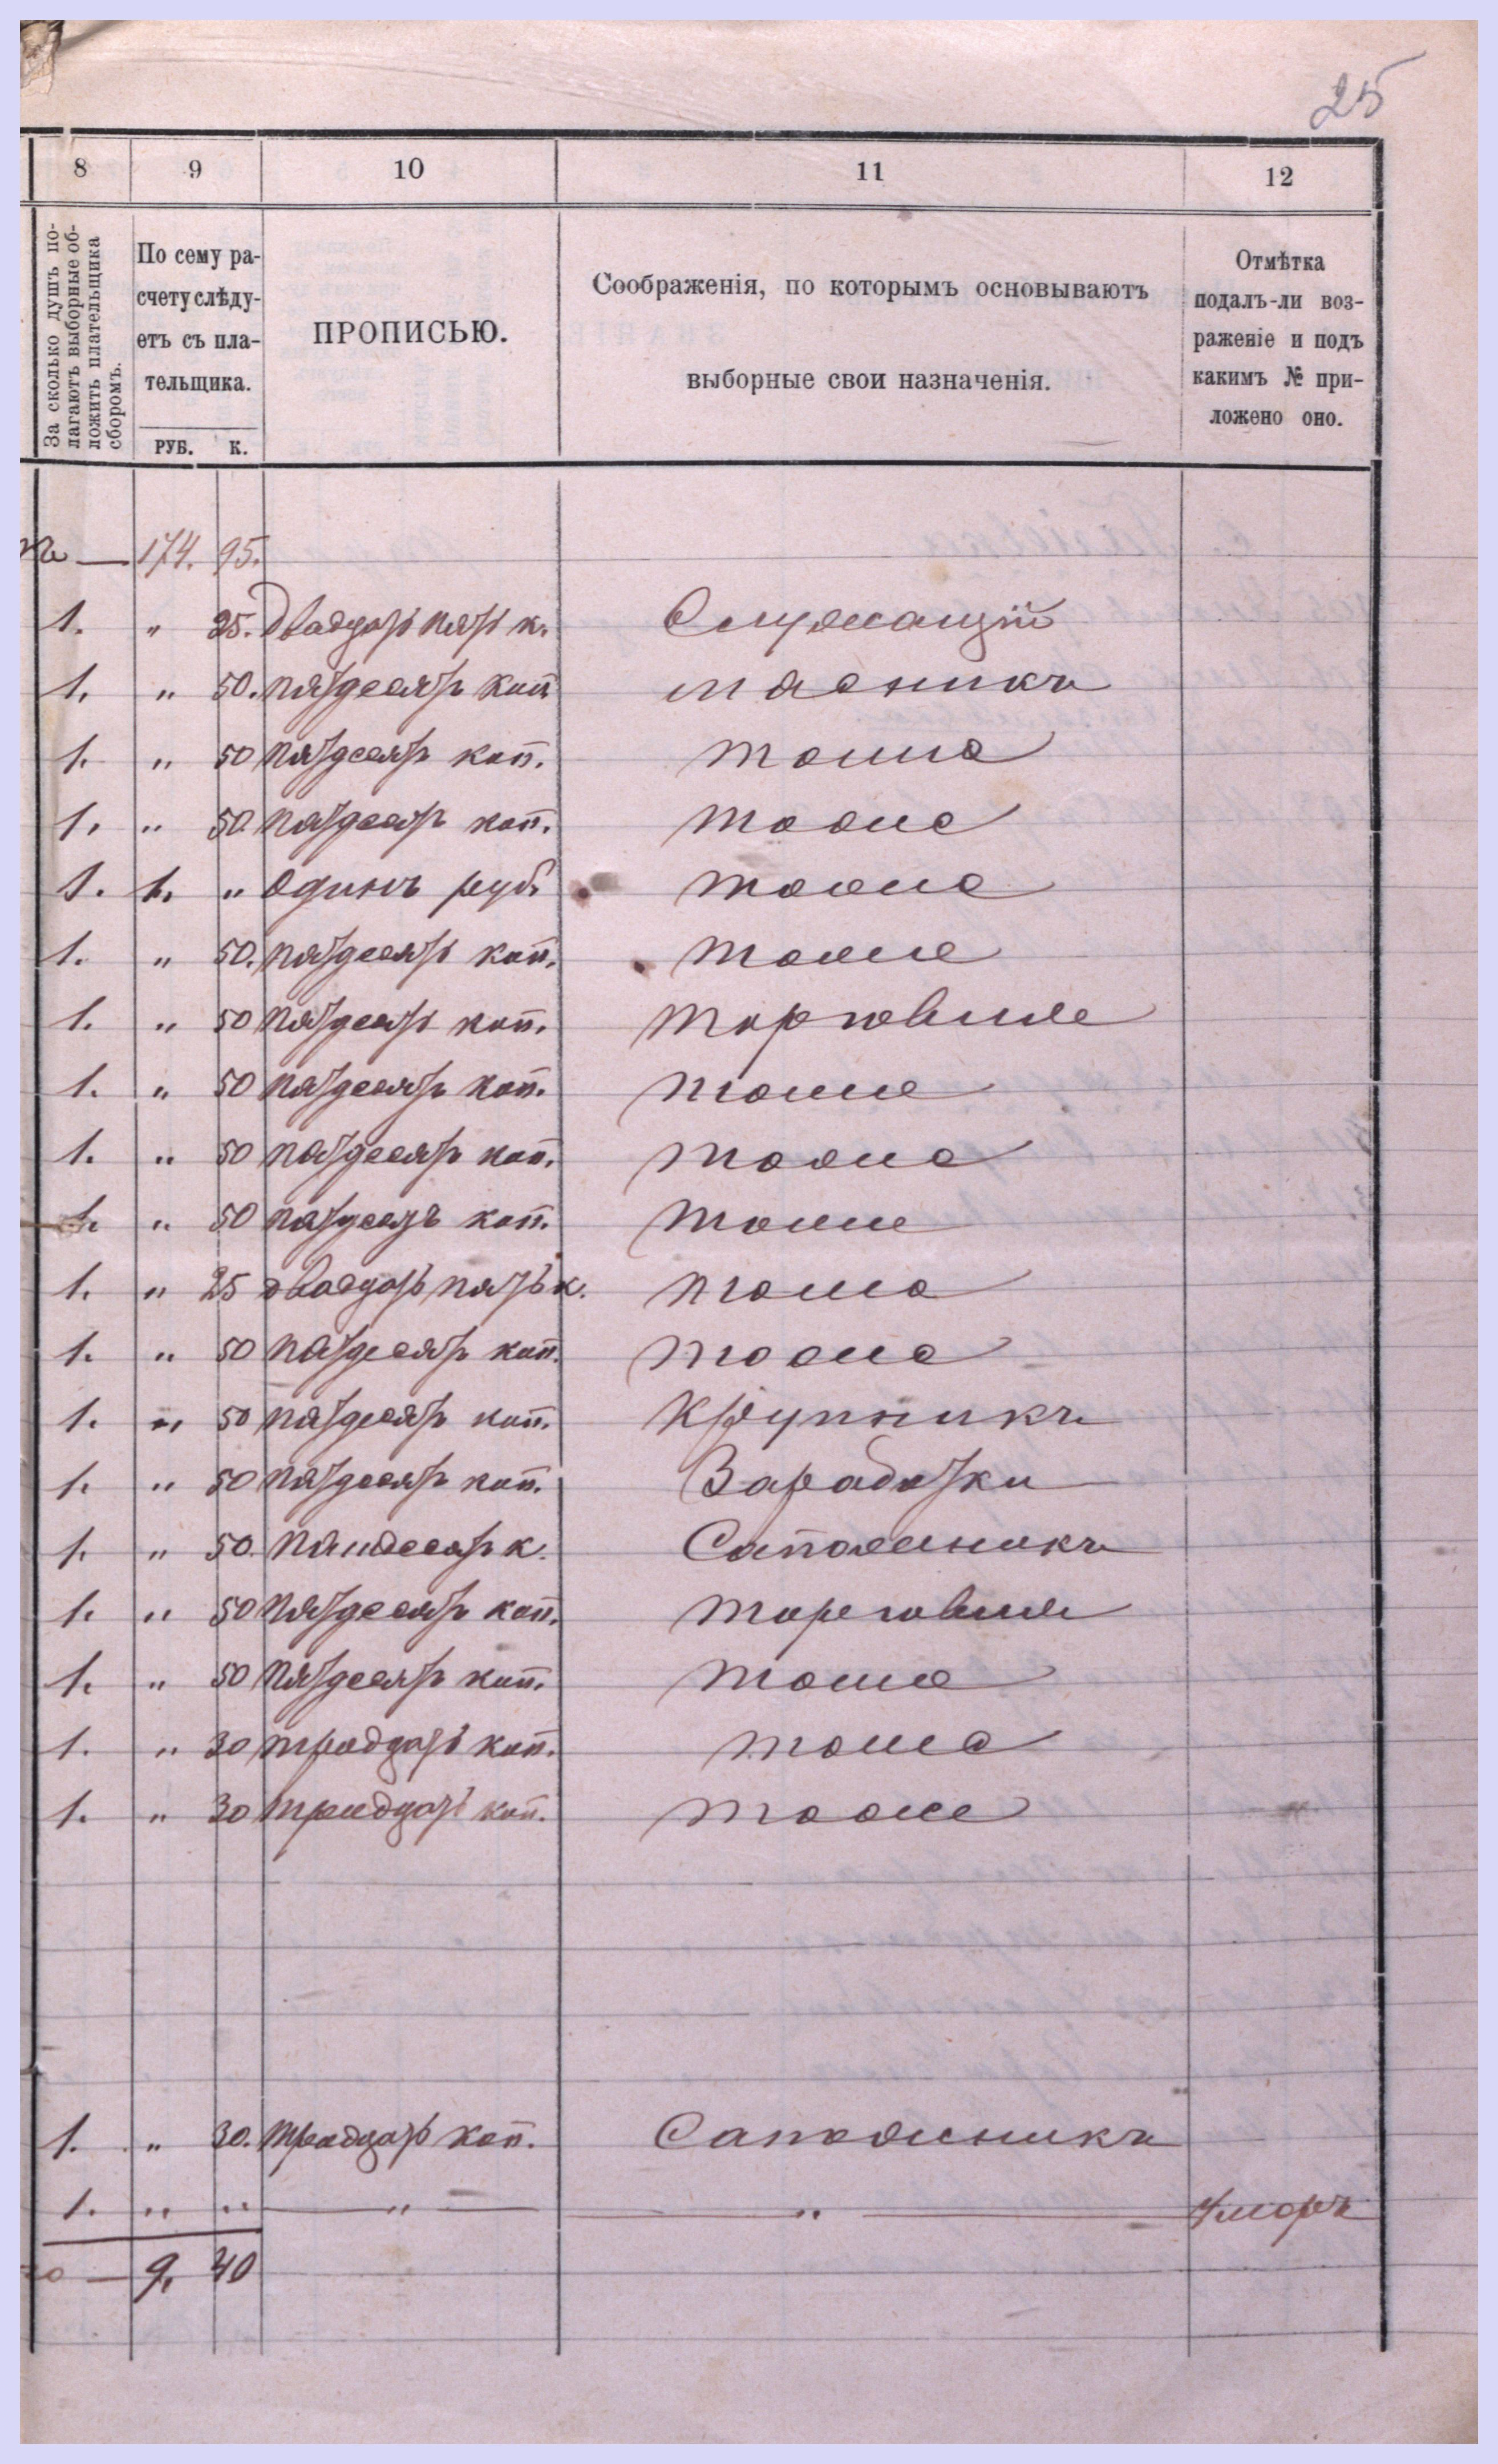 25
8 9 10 11 12
За сколько душъ по-
лагаютъ выборные об-
ложить плательщика
сборомъ.
По сему ра-
счету слѣду-
етъ съ пла-
тельщика.
РУБ. К.
ПРОПИСЬЮ.
Соображенія, по которымъ основываютъ
выборные свои назначенія.
Отмѣтка
подалъ-ли воз-
раженіе и подъ
какимъ № при-
ложено оно.
— 174. 95.
1. „ 25. Двадцать пять к. Служащій
1. „ 50. пятдесятъ коп мясникъ
1. „ 50 пятдесятъ коп. тоже
1. „ 50 пятдесятъ коп. тоже
1. 1. „ Одинъ руб. тоже
1. „ 50. пятдесятъ коп. тоже
1. „ 50 пятдесятъ коп. торговля
1. „ 50 пятдесятъ коп. тоже
1. „ 50 пятдесятъ коп. тоже
1. „ 50 пятдесятъ коп. тоже
1. „ 25 двадцать пять к. тоже
1. „ 50 пятдесятъ коп. тоже
1. „ 50 пятдесятъ коп. Крупникъ
1. „ 50 пятдесятъ коп. Заработки
1. „ 50. пятдесятъ к. Сапожникъ
1. „ 50 пятдесятъ коп. торговля
1. „ 50 пятдесятъ коп. тоже
1. „ 30 тридцать коп. тоже
1. „ 30 тридцать коп. тоже
1. „ 30. тридцать коп. Сапожникъ
1. „ „ — „ — — „ — Умеръ
— 9. 40